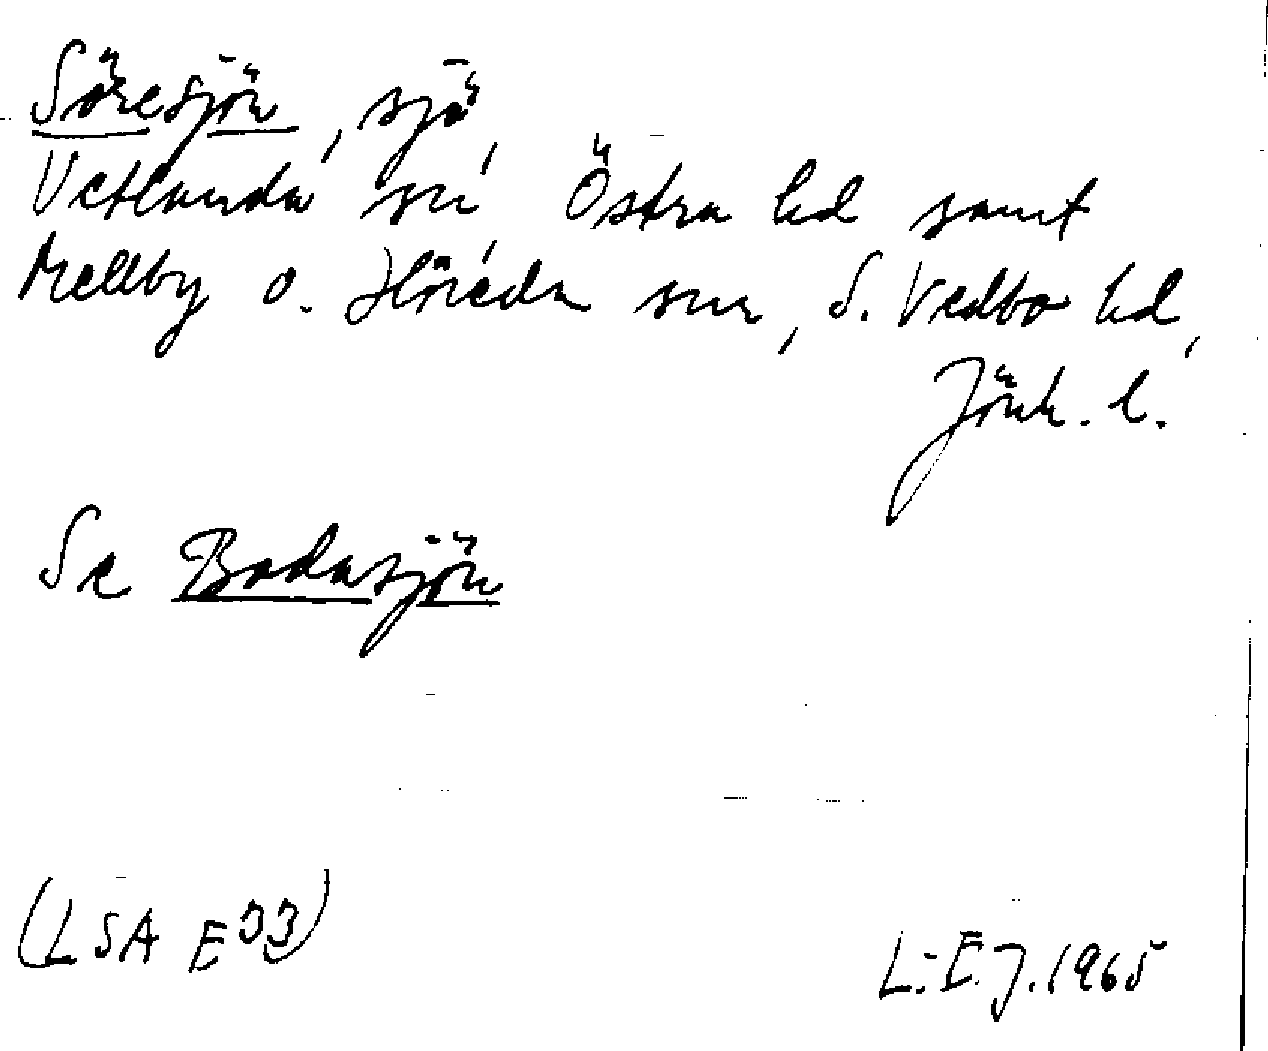 Söresjön, sjö,
Vetlanda sn, Östra hd samt
Mellby o. Höreda snr, S. Vedbo hd,
Jönk. l.
Se Bodasjön
(LSA E33)
L.-E. J. 1965